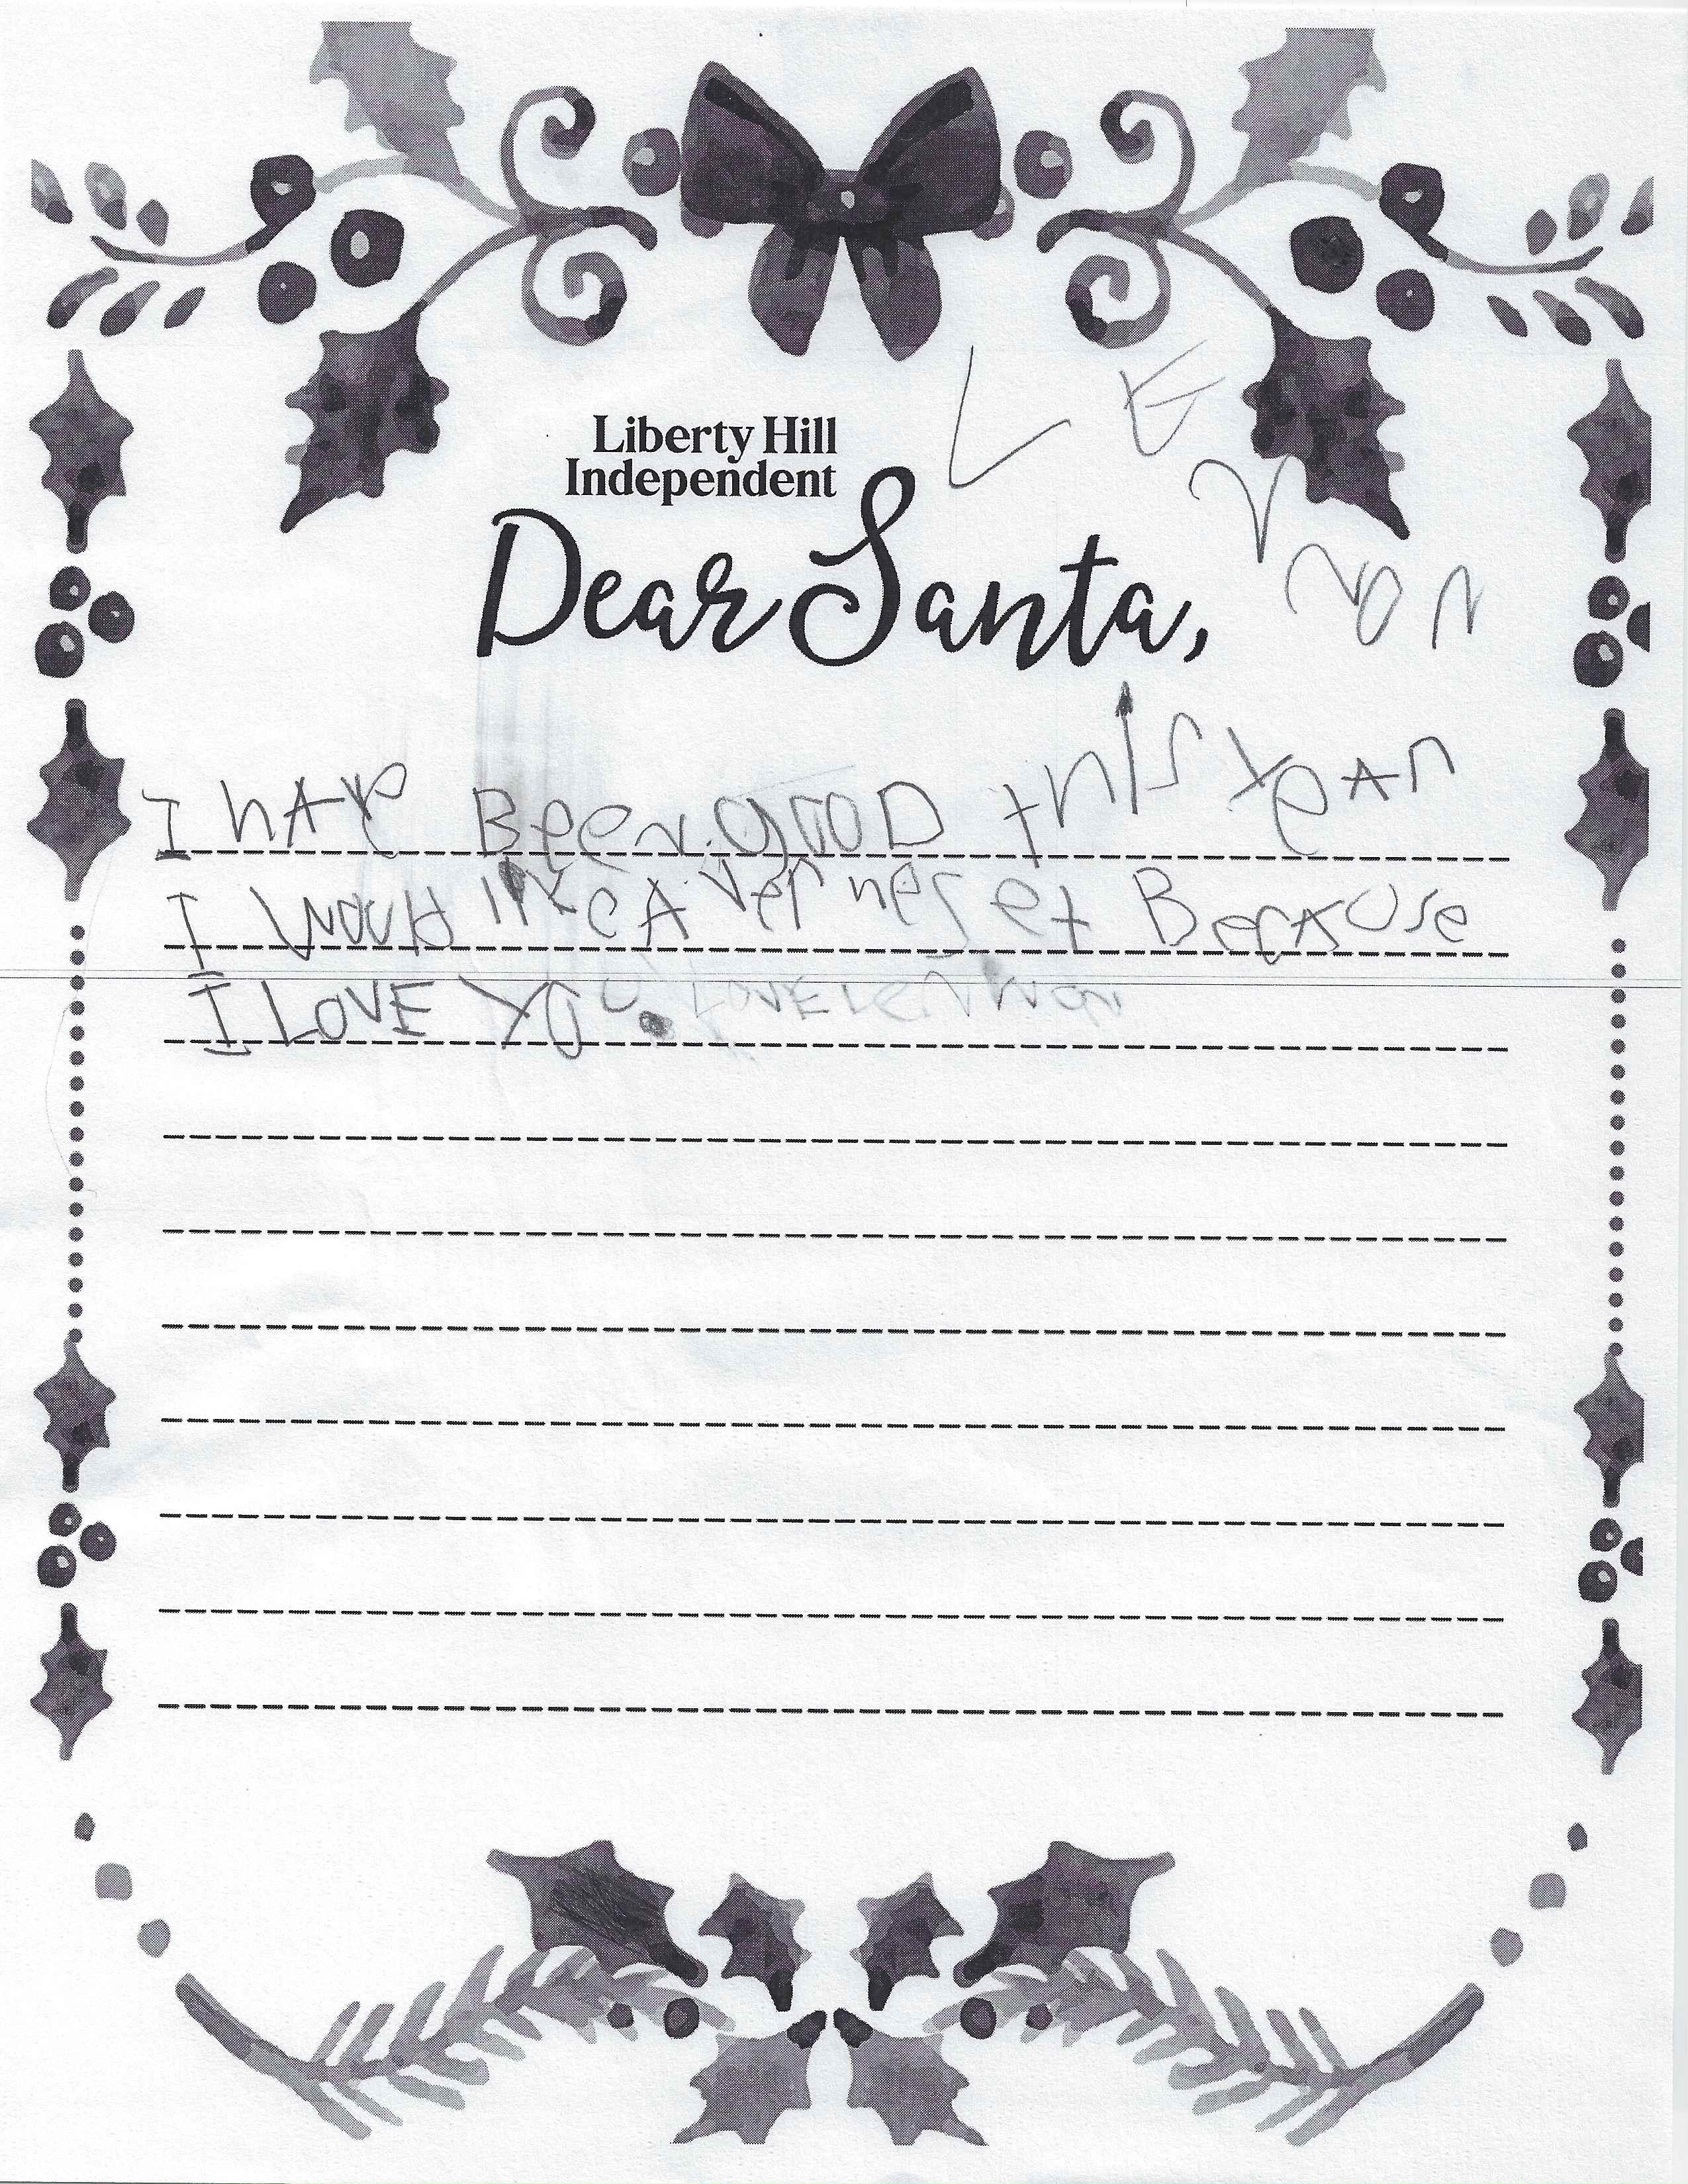 Liberty Hill
Independent
LENNON
Dear Santa,
I have Been good this year
I Would like A set Because
I LOVE YOU. LOVE Lennon